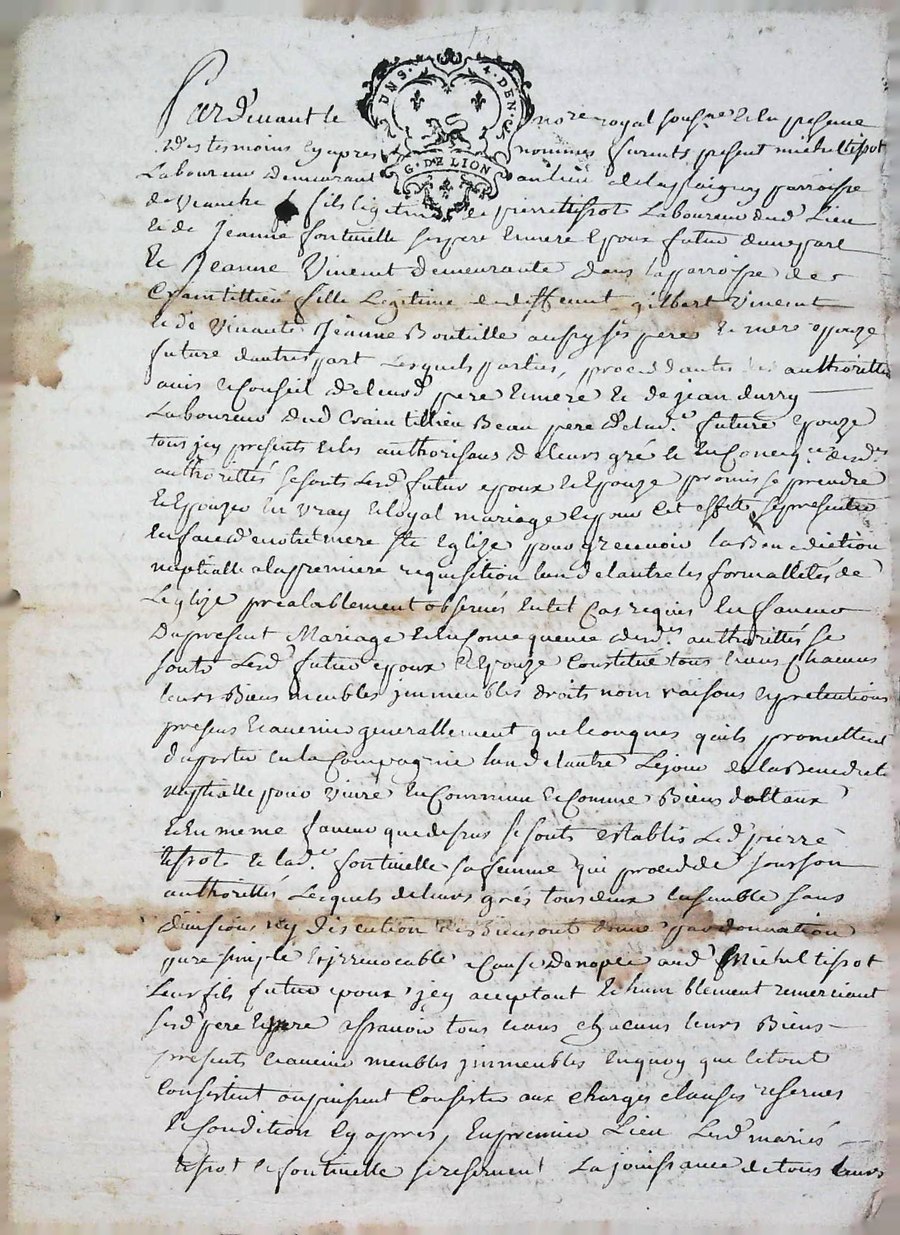 DNS. 4. DEN.S
G. DE LION
Pardevant le nore royal sousne et en presence
des temoins cy apres nommés furent present michel tissot
Laboureur demeurant au lieu de parroisse
de veauche fils legitime de pierre tissot Laboureur dud Lieu
et de Jeanne fontinelle ses pere et mere Epoux futur dune part
Et Jeanne Vincent demeurante dans la parroisse de
Craintillieu fille Legitime de deffunt gilbert Vincent
et de Vivante Jeanne Boutille aussy ses pere et mere epouze
future d'autre part Lesquels parties, procedantes authorittés
avis et Conseil de leursd pere et mere et de jean durry
Laboureur dud Craintillieu Beau pere de lad. future epouze
tous jcy presents et les authorisans de leurs gré et en Conceqce desds
authorittés se sonts Lesd futur epoux et Epouze promis se prendre
et Epouzer en vray et loyal mariage et pour cet effet se presenter
en face de notre mere ste Eglize pour y recevoir la Benediction
nuptialle a la premiere requisition lun de lautre les formallités de
Leglize prealablement observés en tel Cas requis En faveur
Du present Mariage et en Consequence desds authorittés se
sonts Lesd futur epoux et Epouze Constitué tous leurs Chacuns
leurs Biens meubles jmmeubles droits noms raisons et pretentions
presens et avenir generallement quelconques quils promettent
daporter en la Compagnie lun de lautre Le jour de la Benedicte
nuptialle pour vivre en Commun et Comme Biens dottaux
et En meme faveur que dessus se sonts establis Led pierre
tissot et lade fontinelle sa femme qui procedde sous son
authorittés Lesquels de leurs grés tous deux ensemble sans
division ny discution des biens ont donné par donnation
pure simple et jrrevocable a Cause de nopce aud Michel tissot
Leur fils futur epoux jcy acceptant et humblement remerciant
sesd pere et mere a scavoir tous leurs chacuns leurs Biens
presents et avenir meubles jmmeubles en quoy que le tout
Consistent ou puissent Consister aux charges clauses reserves
et Condition cy apres, En premier Lieu Lesd mariés
tissot et fontinelle se reservent La jouissance de tous leurs